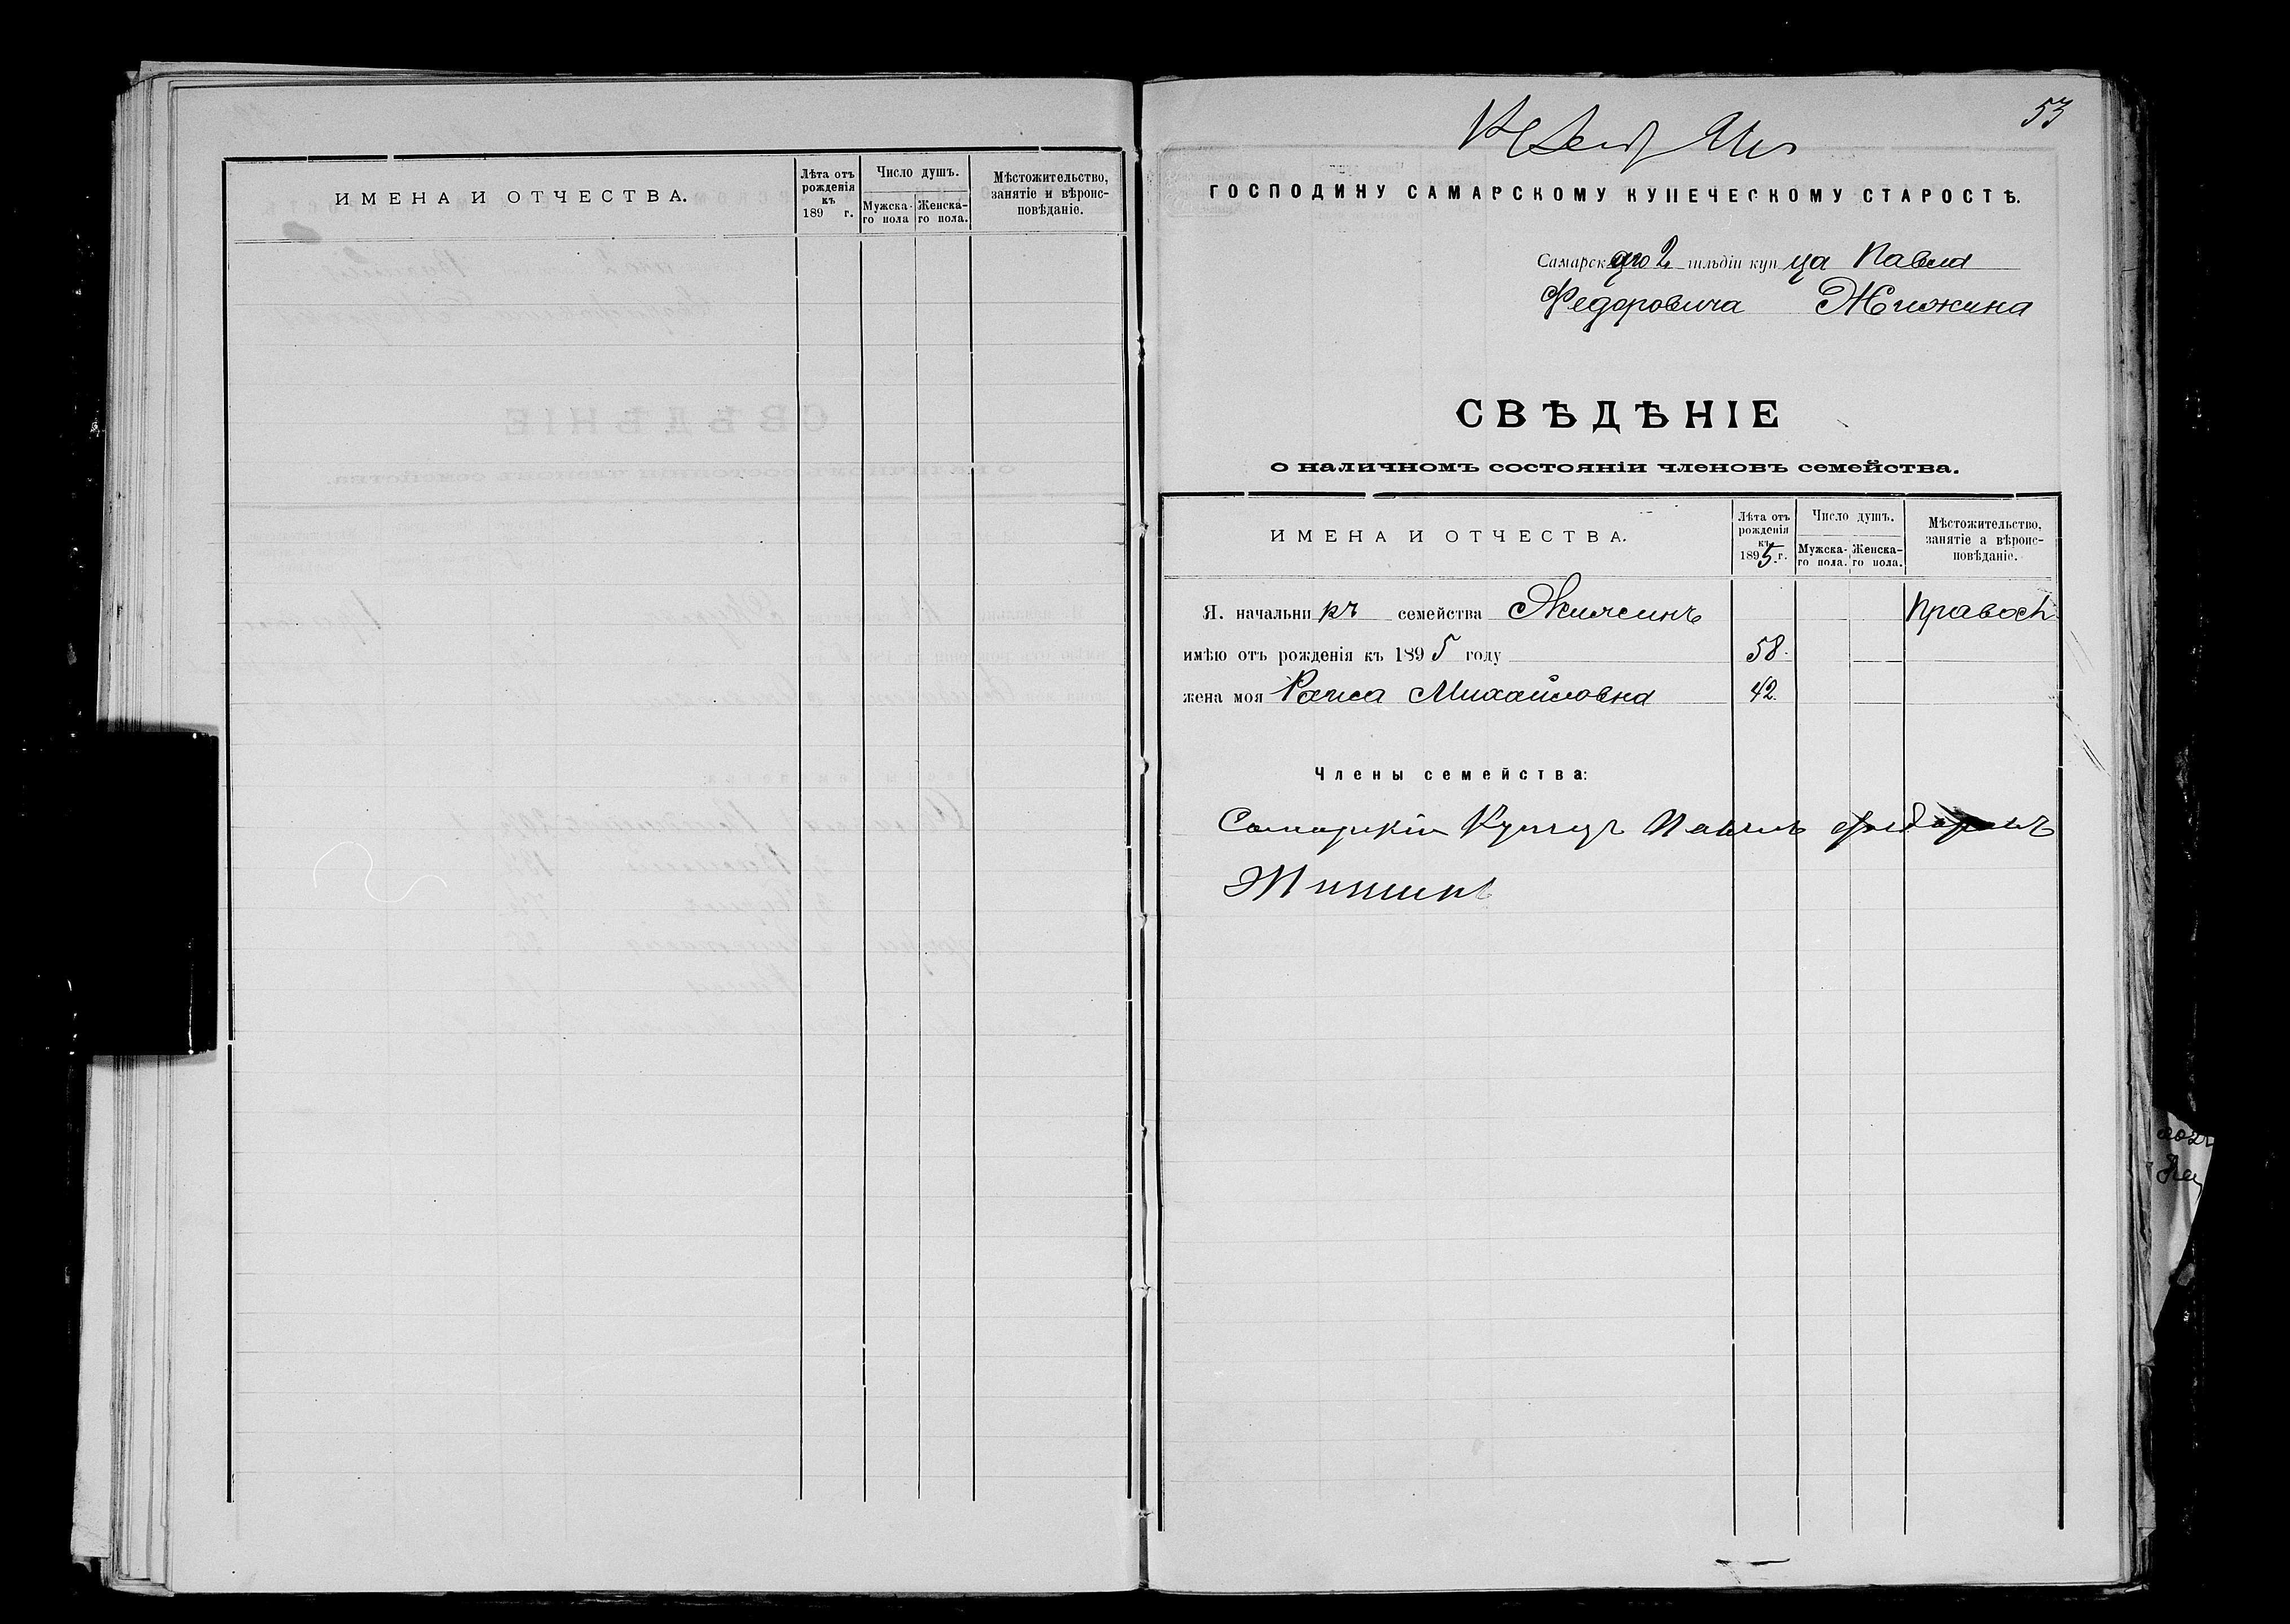 ИМЕНА И ОТЧЕСТВА.
Лѣта отъ
рожденія
къ
189 г.
Число душъ.
Мужска-
го пола
Женска-
го пола.
Мѣстожительство,
занятіе и вѣроис-
повѣданіе.
53
ГОСПОДИНУ САМАРСКОМУ КУПЕЧЕСКОМУ СТАРОСТѢ.
Самарскаго 2 гильдіи купца Павла
Федоровича Жижина
СВѢДѢНІЕ
о наличномъ состояніи членовъ семейства.
ИМЕНА И ОТЧЕСТВА.
Лѣта отъ
рожденія
къ
1895 г.
Число душъ.
Мужска-
го пола.
Женска-
го пола.
Мѣстожительство,
занятіе а вѣроис-
повѣданіе.
Я. начальникъ семейства Жижинъ Правосл
имѣю отъ рожденія къ 1895 году 58.
жена моя Раиса Михайловна 42.
Члены семейства:
Самарскій Купецъ Павелъ
Жижинъ